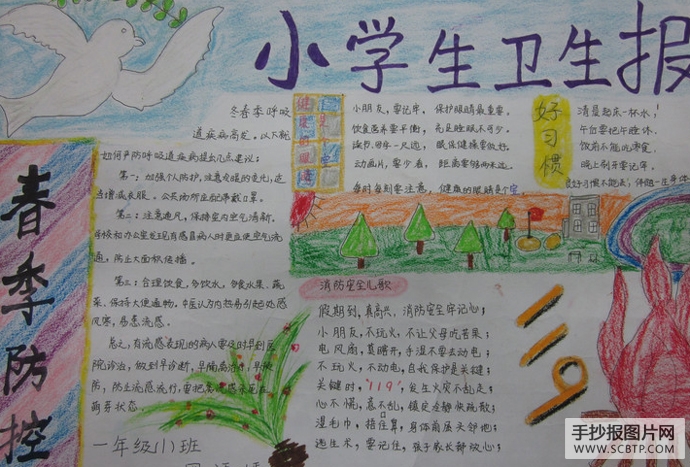 小学生卫生报
春季防控
冬春季呼吸
道疾病高发，以下就
如何严防呼吸道疾病提出几点建议：
第一：加强个人防护，注意冷暖的变化，适
当增减衣服。公共场所应配带戴口罩。
第二：注意通风，保持室内空气清新，
学校和办公室发现有感冒病人时更应使空气流
通，防止大面积传播。
第三：合理饮食，多饮水，多食水果、蔬
菜，保持大便通畅。中医认为内热易引起外感
风寒，易患流感。
总之，有流感表现的病人要及时到医
院诊治，做到早诊断，早隔离治疗，早预
防，防止流感流行，
萌芽状态。
一年级(1)班
健康的眼睛是个宝
小朋友，要记牢，保护眼睛最重要。
饮食营养要平衡，充足睡眠不可少。
读书、写字一尺远，眼保健操要做好。
动画片，要少看，距离要够两米远。
每时每刻要注意，健康的眼睛是个宝
好习惯
清晨起床一杯水！
午台要记午睡休，
饮前不能吃零食，
晚上刷牙要记牢，
良好习惯不能丢，伴随一生身体
消防安全儿歌
假期到，真高兴，消防安全牢记心；
小朋友，不玩火，不让父母吃苦果；
电风扇，莫瞎开，手湿不要去动电；
不玩火，不动电，自我保护是关键；
关键时，"119"，发生火灾不乱走；
心不慌，意不乱，镇定冷静快疏散；
湿毛巾，捂住鼻，身体前屈头邻地；
逃生术，要记住，孩子家长都放心；
119
手抄报图片网
WWW.SCBTP.COM